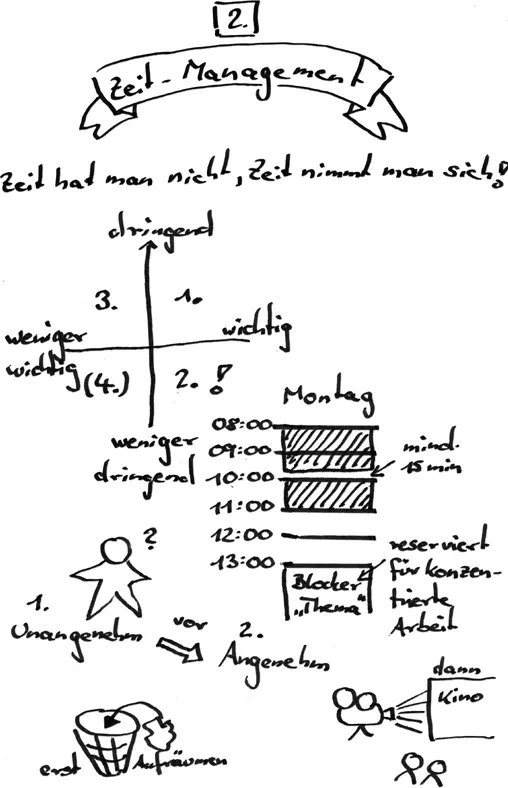 2.
Zeit-Management
Zeit hat man nicht, Zeit nimmt man sich!
dringend
3. 1.
weniger
wichtig
wichtig
(4.) 2. !
weniger
dringend
Montag
08:00
09:00
10:00
11:00
12:00
13:00
mind.
15 min
Blocker
"Thema"
reserviert
für konzen-
trierte
Arbeit
?
1.
Unangenehm
vor
2.
Angenehm
erst Aufräumen
dann
Kino